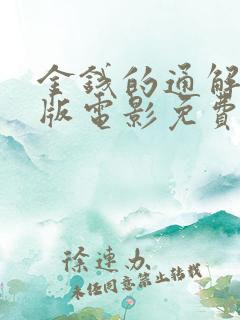 金錢的通解
版電影免費
徐速办
未经同意禁止转载